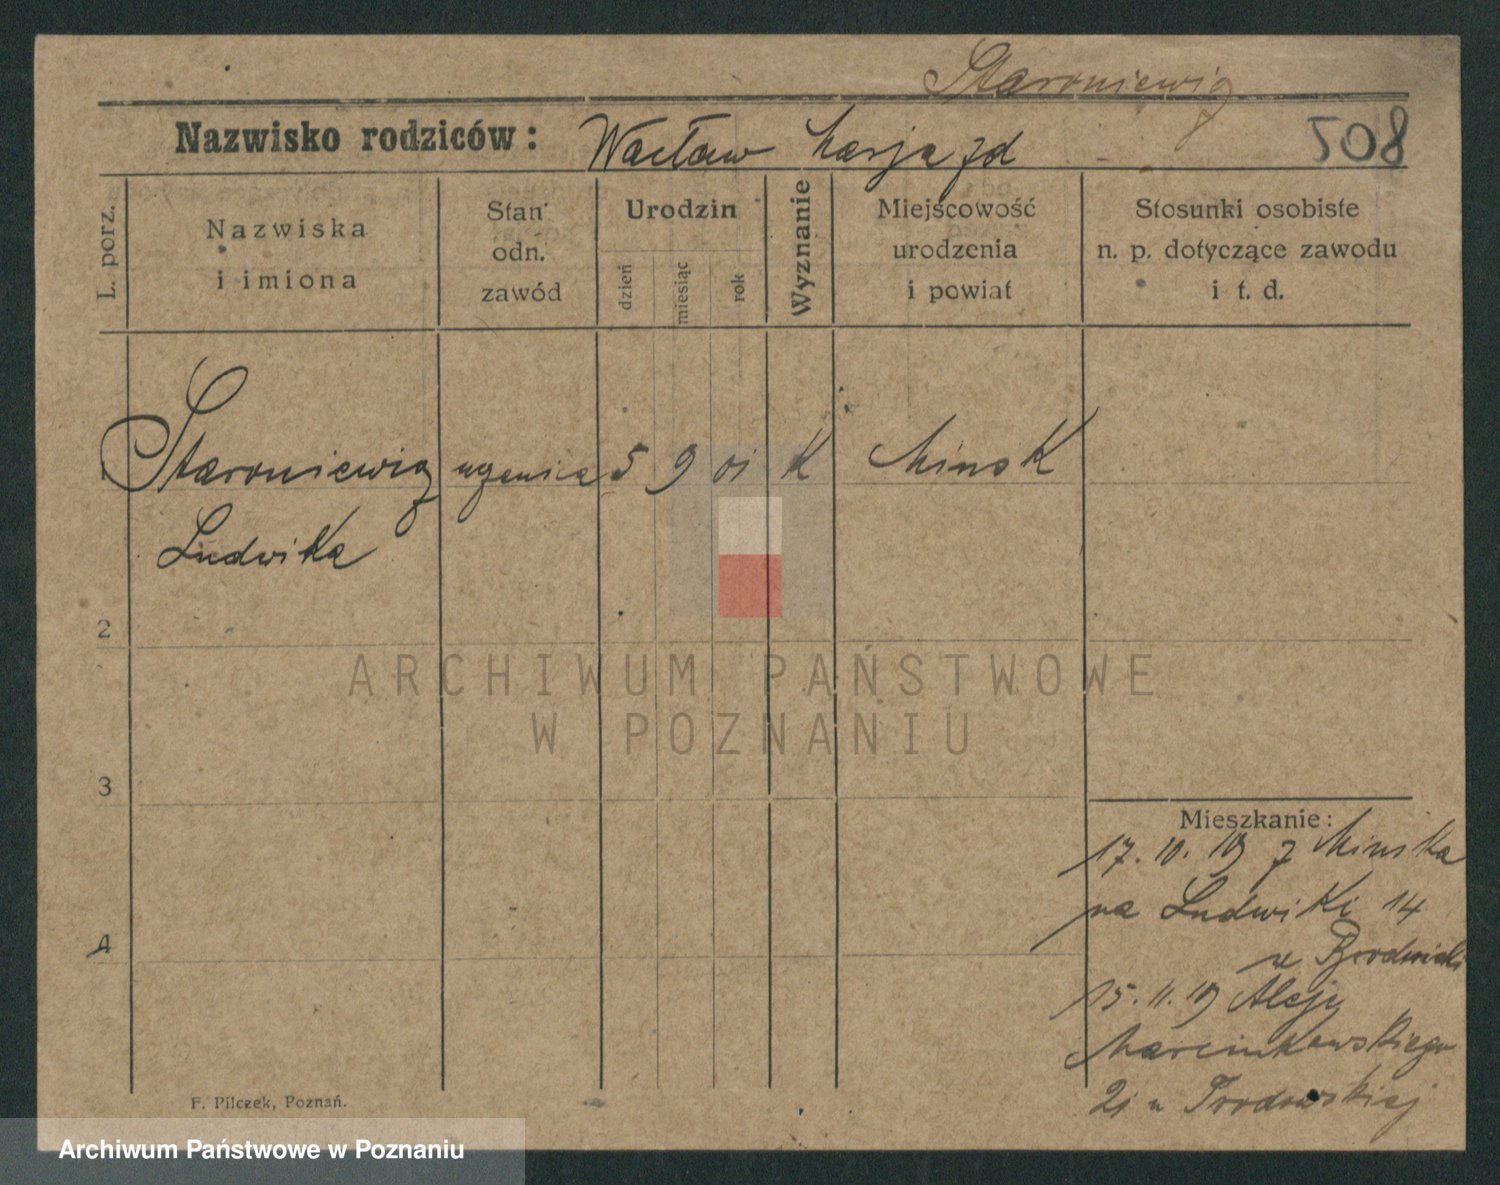 Staroniewicz
Nazwisko rodziców: Wacław Marja zd
508
L. porz.
Nazwiska
i imiona
Stan
odn.
zawód
Urodzin
dzień
miesiąc
rok
Wyznanie
Miejscowość
urodzenia
i powiat
Stosunki osobiste
n. p. dotyczące zawodu
i t. d.
Staroniewicz uczenica 5 9 01 K Minsk
Ludwika
2
3
4
Mieszkanie:
17. 10. 19 z Minska
na Ludwiki 14
u
15. 11. 19 Aleje
Marcinkowskiego
21 u
F. Pilczek, Poznań.
ARCHIWUM PAŃSTWOWE
W POZNANIU
Archiwum Państwowe w Poznaniu